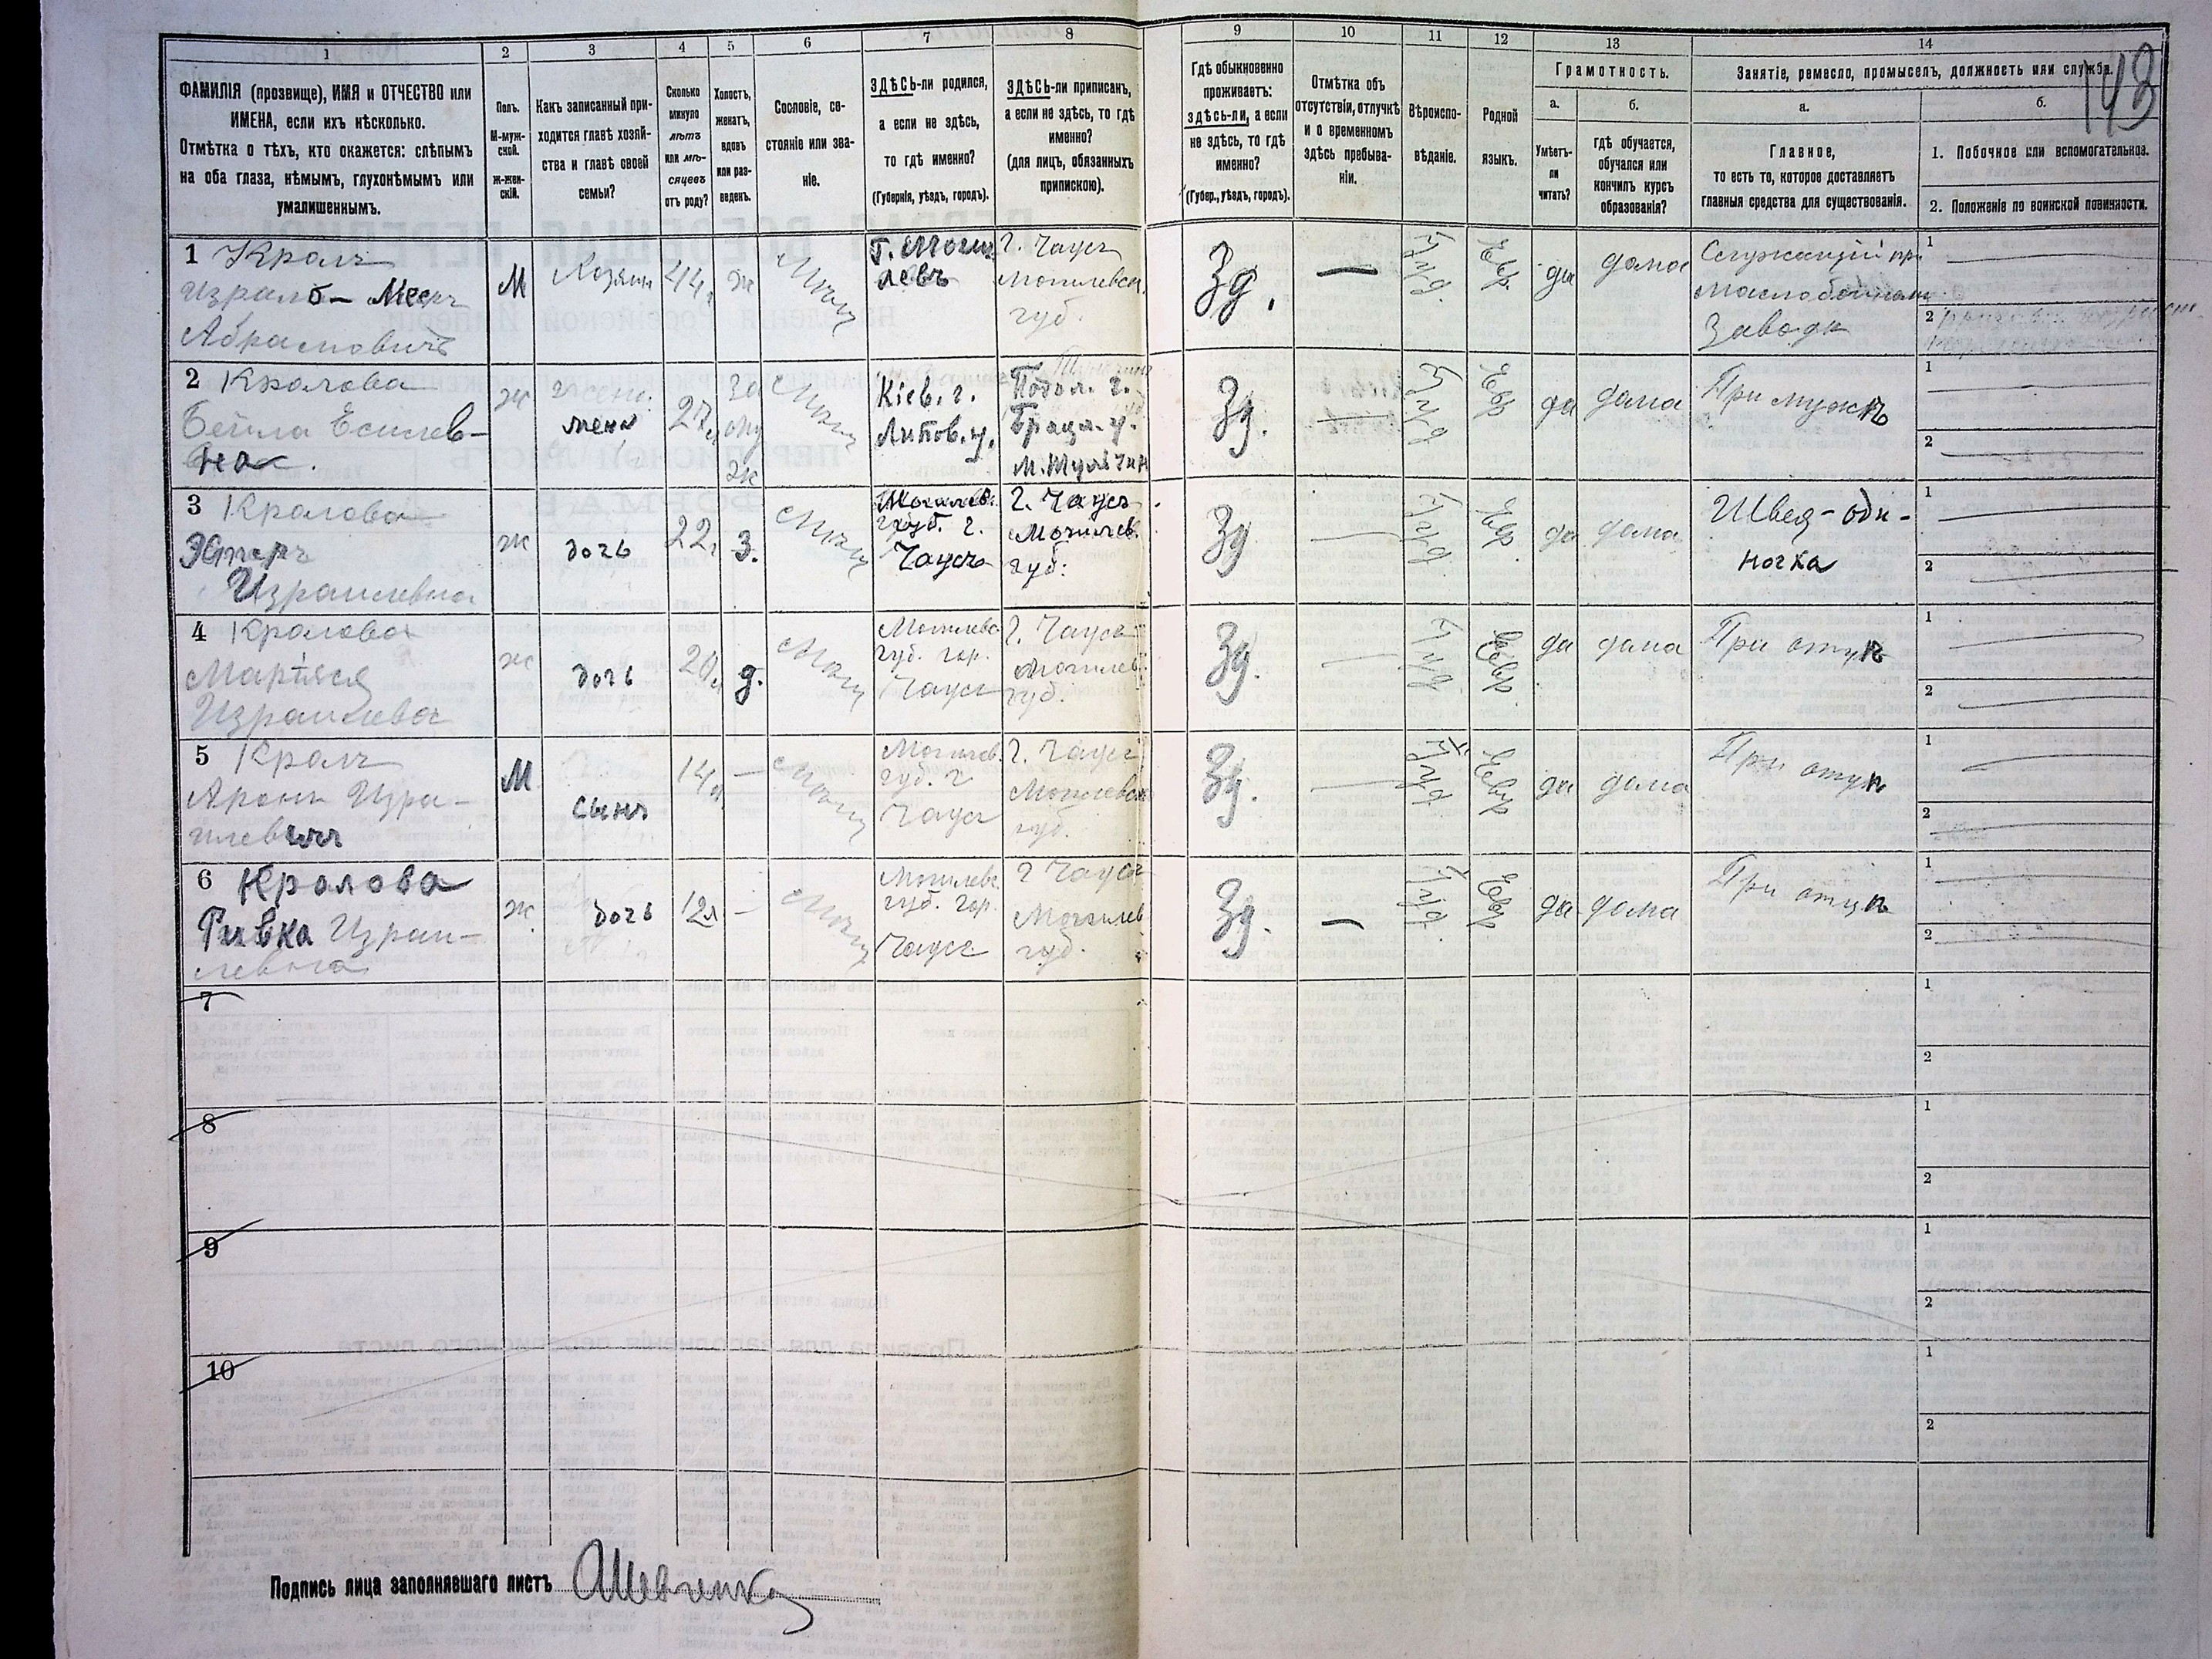 143
1 2 3 4 5 6 7 8 9 10 11 12 13 14
ФАМИЛІЯ (прозвище), ИМЯ и ОТЧЕСТВО или
ИМЕНА, если ихъ нѣсколько.
Отмѣтка о тѣхъ, кто окажется: слѣпымъ
на оба глаза, нѣмымъ, глухонѣмымъ или
умалишеннымъ.
Полъ.
М-муж-
ской.
Ж-жен-
скій.
Какъ записанный при-
ходится главѣ хозяй-
ства и главѣ своей
семьи?
Сколько
минуло
лѣтъ
или мѣ-
сяцевъ
отъ роду?
Холостъ,
женатъ,
вдовъ
или раз-
веденъ.
Сословіе, со-
стояніе или зва-
ніе.
ЗДѢСЬ-ли родился,
а если не здѣсь,
то гдѣ именно?
(Губернія, уѣздъ, городъ).
ЗДѢСЬ-ли приписанъ,
а если не здѣсь, то гдѣ
именно?
(для лицъ, обязанныхъ
припискою).
Гдѣ обыкновенно
проживаетъ:
здѣсь-ли, а если
не здѣсь, то гдѣ
именно?
(Губер., уѣздъ, городъ).
Отмѣтка объ
отсутствіи, отлучкѣ
и о временномъ
здѣсь пребыва-
ніи.
Вѣроиспо-
вѣданіе.
Родной
языкъ.
Грамотность.
а.
Умѣетъ-
ли
читать?
б.
гдѣ обучается,
обучался или
кончилъ курсъ
образованія?
Занятіе, ремесло, промыселъ, должность или служба.
а.
Главное,
то есть то, которое доставляетъ
главныя средства для существованія.
б.
1. Побочное или вспомогательное.
2. Положеніе по воинской повинности.
1 Кралъ
Абрамовичъ
М
44
ж
Г. Моги
левъ
Г. Чаусъ
Могилевск.
губ.
Зд.
Іуд.
Евр.
да
дома
Служащій при
Маслобойном
Заводѣ
1
2
2 Кралова
Бейла
вна.
ж
жена
27
ж
Кіев. г.
Липов. у.
Подол. г.
Брацл. у.
м. Тульчин
Зд.
Іуд
Евр
да
дома
При мужѣ
1
2
3 Кралова
Эстеръ
Израилевна
ж
дочь
22
з.
Могилев.
губ. г.
Чаусъ
Г. Чаусъ
Могилев.
губ.
Зд
Іуд.
Евр.
да
дома
Швея-оди-
ночка
1
2
4 Кралова
Израилева
ж
дочь
20
д.
Могилевс
губ. гор.
Чаусъ
Г. Чаусъ
Могилев.
губ.
Зд.
Іуд
Евр.
да
дома
При отцѣ
1
2
5 Кралъ
Аронъ Изра-
илевичъ
М
сынъ
14
Могилев.
губ. г
Чаусъ
Г. Чаусъ
Могилевск
губ.
Зд.
Іуд
Евр
да
дома
При отцѣ
1
2
6 Кралова
Ривка Израи-
левна
ж
дочь
12л
Могилевс.
губ. гор.
Чаусъ
Г Чаусъ
Могилев
губ.
Зд.
Іуд.
Евр
да
дома
При отцѣ
1
2
7
1
2
8
1
2
9
1
2
10
1
2
Подпись лица заполнявшаго листъ